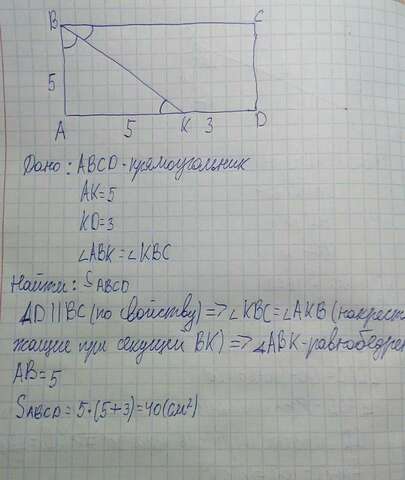 B C
5
A 5 K 3 D
Дано: ABCD-прямоугольник
AK=5
KD=3
∠ABK=∠KBC
Найти: S ABCD
AD||BC (по свойству) => ∠KBC=∠AKB (накрест
жащие при секущей BK) => △ABK-равнобедрен
AB=5
S ABCD = 5·(5+3)=40(см²)